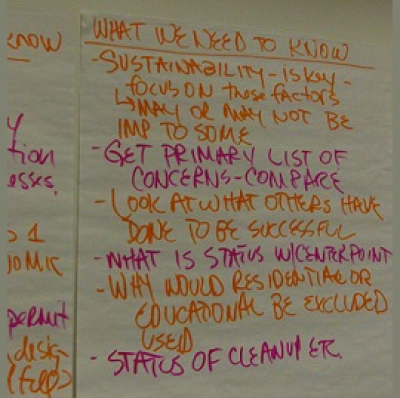 KNOW
Y
tion
esses,
1
OMIC
permit
design
WHAT WE NEED TO KNOW
- SUSTAINABILITY - is key -
focus on these factors
↳ MAY OR MAY NOT BE
IMP TO SOME
- GET PRIMARY LIST OF
CONCERNS - COMPARE
- LOOK AT WHAT OTHERS HAVE
DONE TO BE SUCCESSFUL
- WHAT IS STATUS W/CENTERPOINT
- WHY WOULD RESIDENTIAL OR
EDUCATIONAL BE EXCLUDED
USED
- STATUS OF CLEANUP ETC.